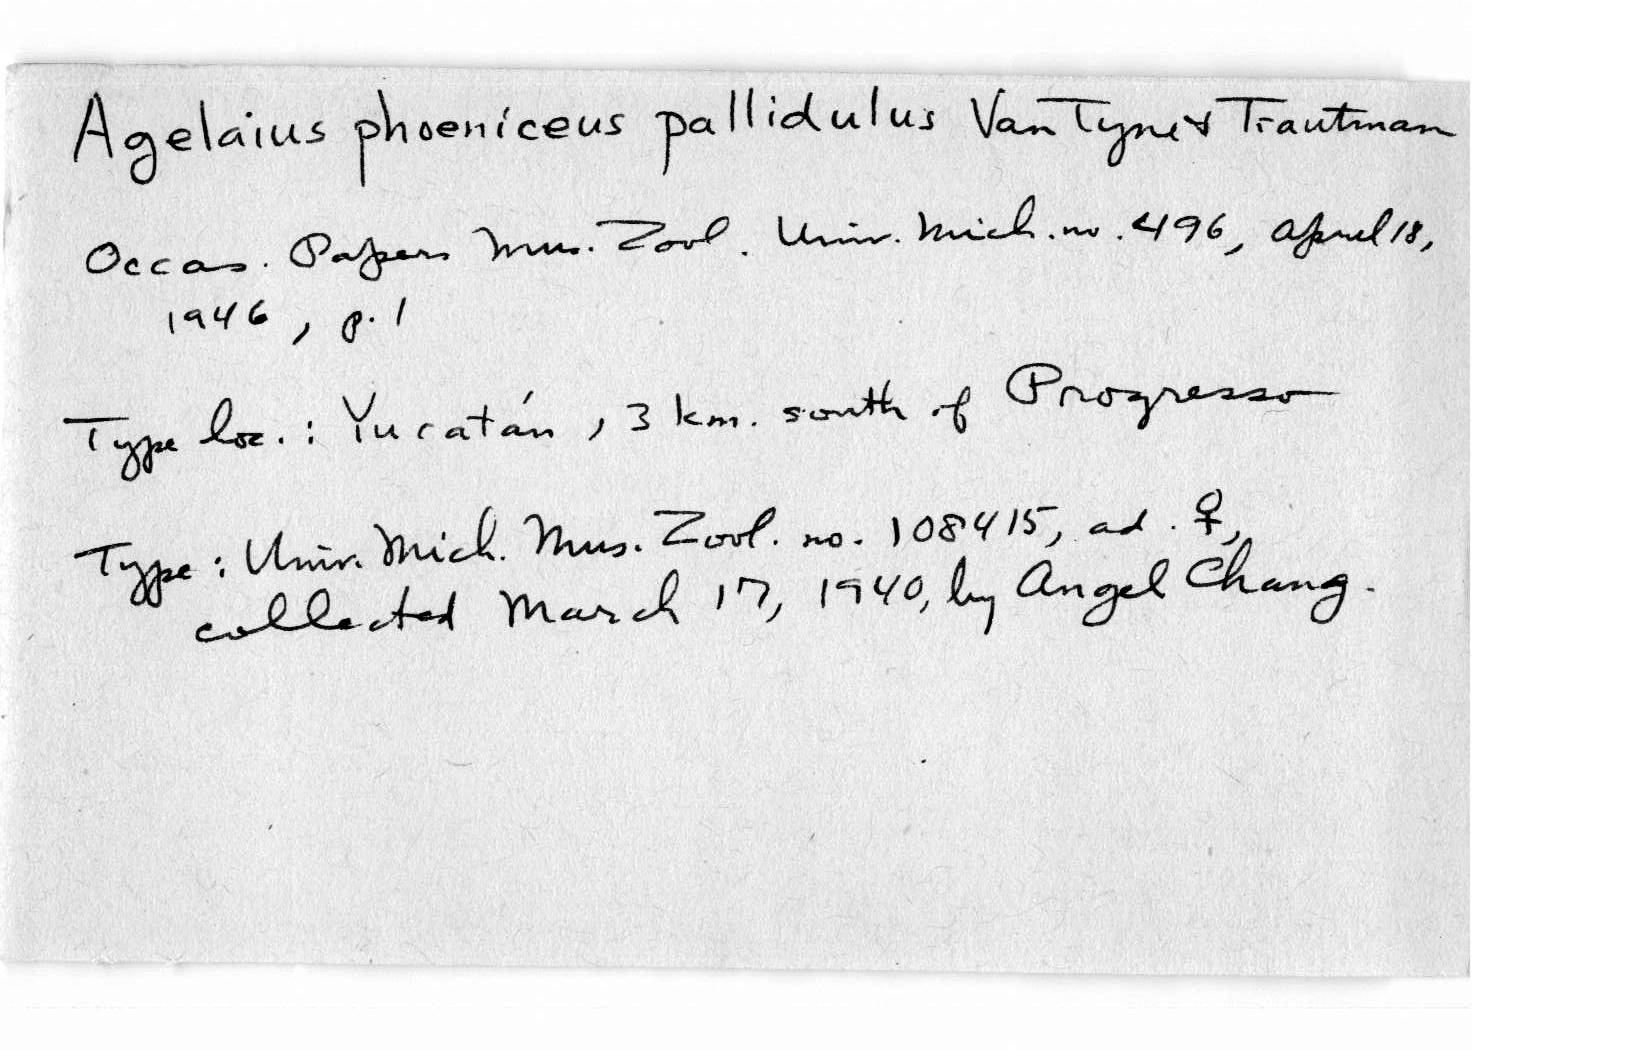 Agelaius phoeniceus pallidulus Van Tyne & Trautman
Occas. Papers Mus. Zool. Univ. Mich. no. 496, April 18,
1946, p. 1
Type loc.: Yucatán, 3 km. south of Progresso
Type: Univ. Mich. Mus. Zool. no. 108415, ad. ♀,
collected March 17, 1940, by Angel Chang.